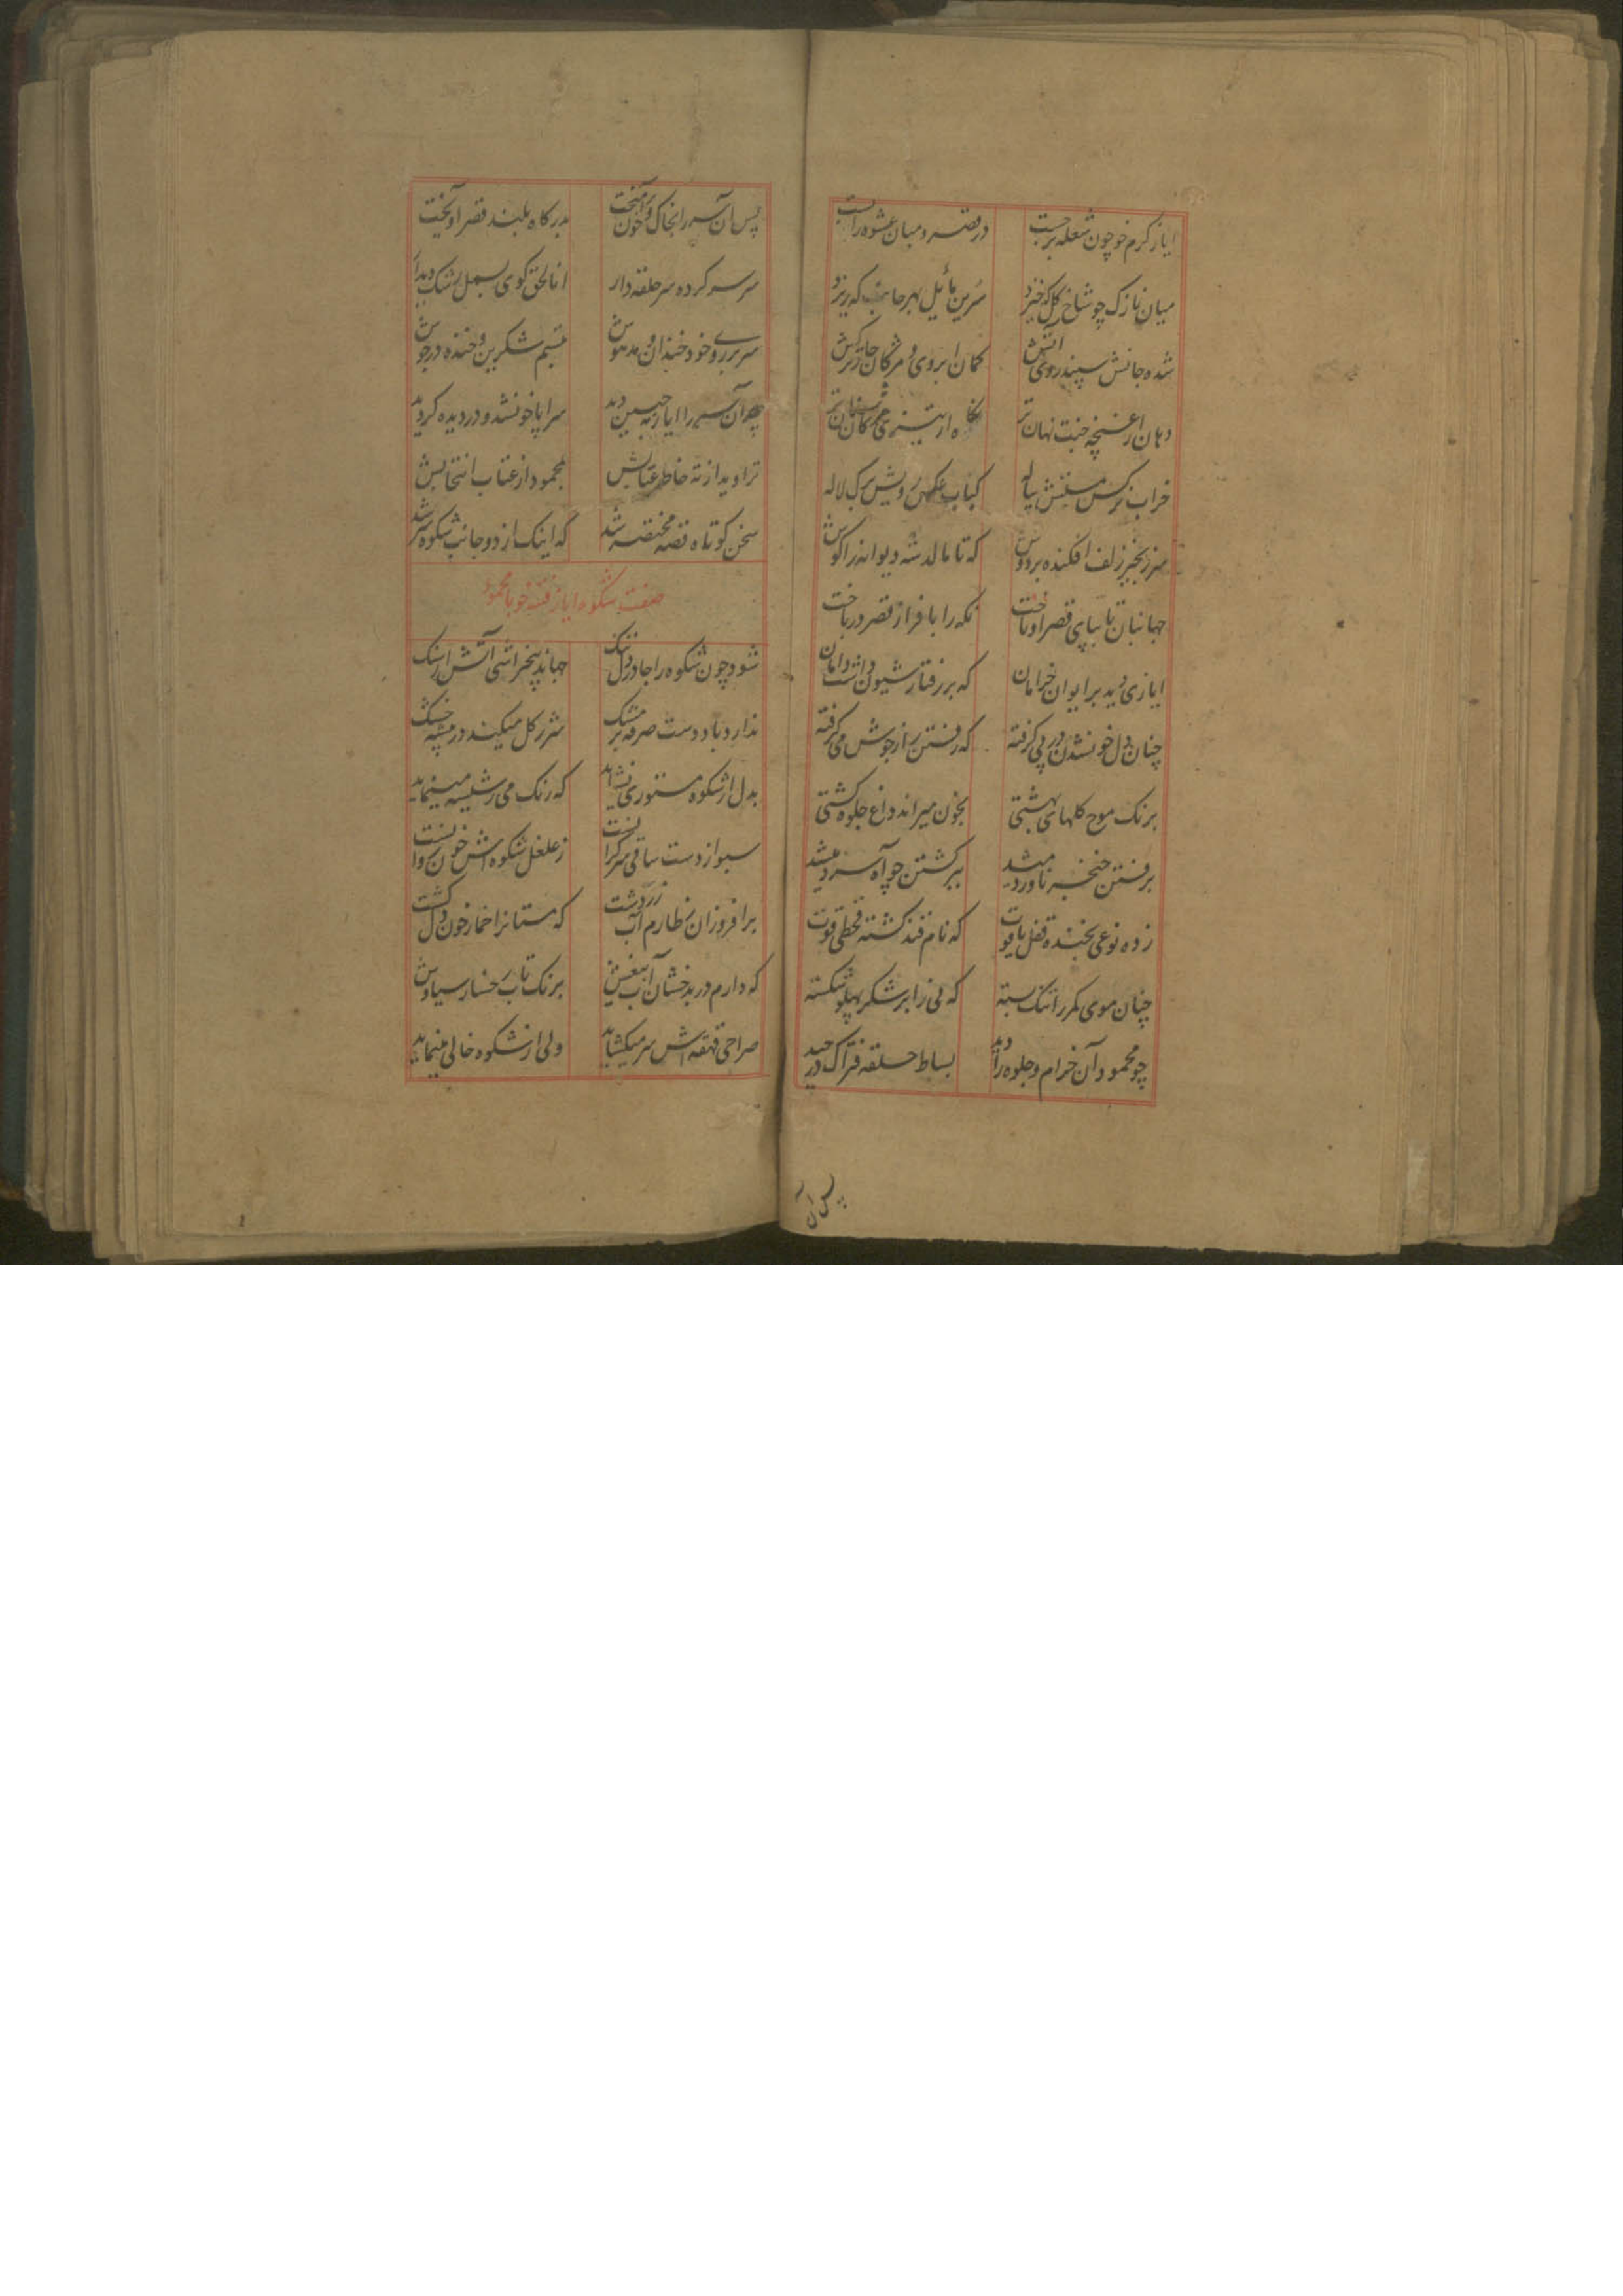 ایاز کرم خو چون شعله برجست در قصر و میان عشوه را بست
میان نازک چو شاخ کل که خیزد سرین مائل بهر جانب که ریزد
شده جانش سپند روی آتش کمان ابروی و مژکان ترکش
دهان را غنچه جنت نهان تر نکاه از تیزی مژکان
خراب نرکس مستش پیاله کباب عکس رویش برک لاله
سر زنجیر زلف افکنده بر دوش که تا مالد شه دیوانه را کوش
جهانبان تا بپای قصر او تاخت نکه را با فراز قصر در باخت
ایازی دید بر ایوان خرامان که بر رفتار شیون داشت دامان
چنان دل خونشدن در پی کرفته که رفتن راز جوش می کرفته
برنک موج کلهای بهشتی بخون میراند داغ جلوه کشتی
برفتن خنجر ناورد میشد ببرکشتن چو آه سرد میشد
زده نوعی بخنده قفل یاقوت که نام قند کشته قحطی قوت
چنان موی کمر را تنک بسته که نی را بر شکر پهلو شکسته
چو محمود آن خرام و جلوه را دید بساط حلقه فتراک در چید
پس آن
پس آن سر را بخاک و خون برآمیخت بدرکاه بلند قصر او یخت
سر سر کرده سر حلقه دار انا الحق کوی بسمل رشک دیدار
سر بر روی خود خندان و مدهوش تبسم شکرین و خنده در جوش
چو آن سر را ایاز مه جبین دید سراپا خونشد و در دیده کردید
تراوید از ته خاطر عتابش بمحمود از عتاب انتخابش
سخن کوتاه قصه مختصر شد که اینک از دو جانب شکوه سر شد
صفت شکوه ایاز فتنه خو با محمود
شود چون شکوه را جا در دل تنک جهاند پنجر اشی آتش از سنک
ندارد باد دست صرفه بر مشک شرر کل میکند در بیشه خشک
بدل از شکوه مستوری نشاید که رنک می ز شیشه مینماید
سبو از دست ساقی سر کرانست ز غلغل شکوه اش خون روانست
برافروزان ز طارم آب زردشت که مستانرا خمار خون دل کشت
که دارم در بدخشان آب برنک تاب رخسار سیاوش
صراحی قهقه اش سر میکشاید ولی از شکوه خالی مینماید